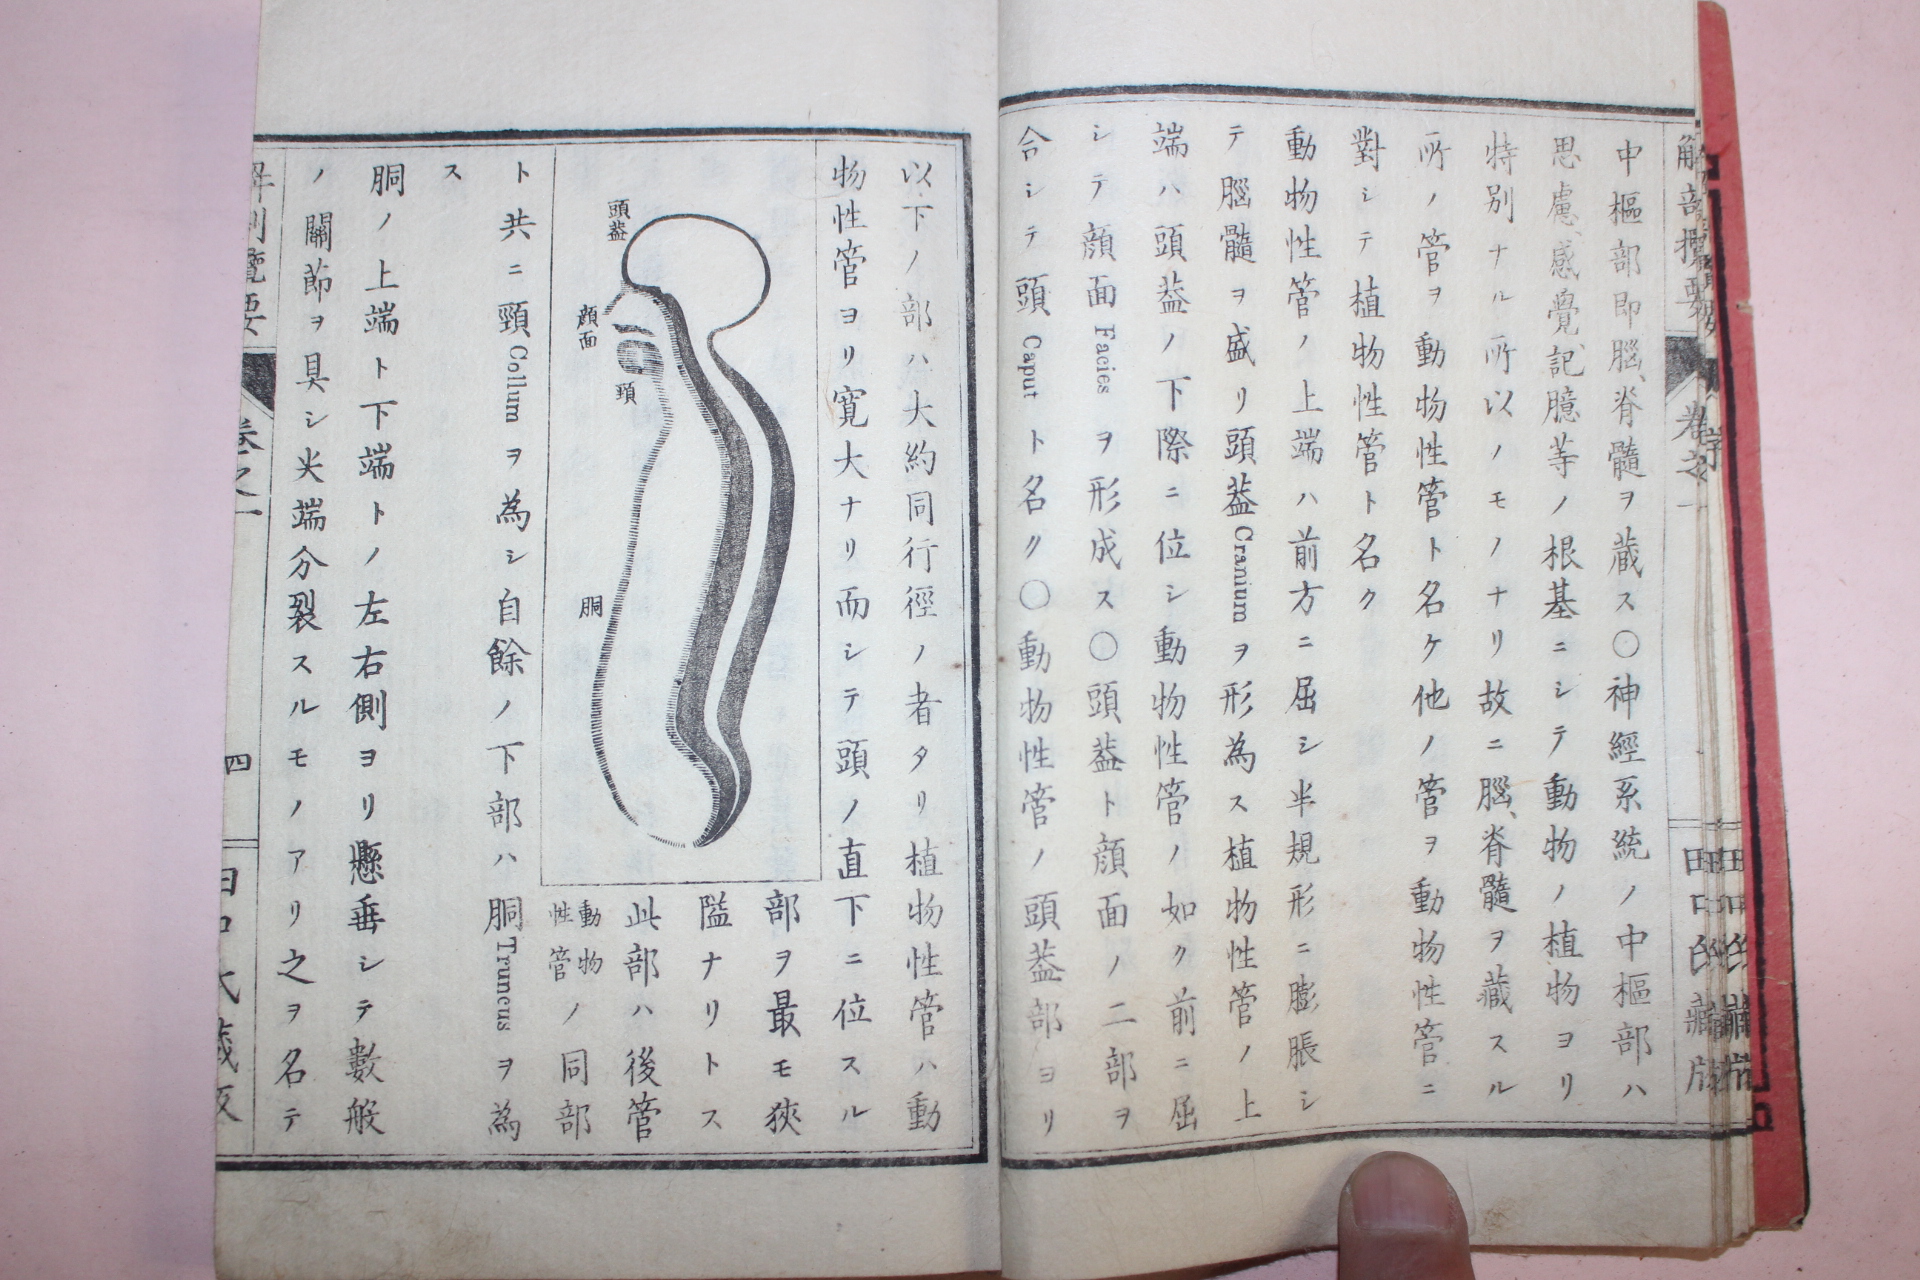 解剖攬要
卷之一
田口氏藏版
中樞部即腦、脊髓ヲ蔵ス〇神經系統ノ中樞部ハ
思慮、感覺、記臆等ノ根基ニシテ動物ノ植物ヨリ
特別ナル所以ノモノナリ故ニ腦、脊髓ヲ藏スル
所ノ管ヲ動物性管ト名ケ他ノ管ヲ動物性管ニ
對シテ植物性管ト名ク
動物性管ノ上端ハ前方ニ屈シ半規形ニ膨脹シ
テ腦髓ヲ盛リ頭葢Craniumヲ形為ス植物性管ノ上
端ハ頭葢ノ下際ニ位シ動物性管ノ如ク前ニ屈
シテ顔面Faciesヲ形成ス〇頭葢ト顔面ノ二部ヲ
合シテ頭Caputト名ク〇動物性管ノ頭葢部ヨリ
以下ノ部ハ大約同行徑ノ者タリ植物性管ハ動
物性管ヨリ寛大ナリ而シテ頭ノ直下ニ位スル
部ヲ最モ狹
隘ナリトス
此部ハ後管
動物性管ノ同部
頭葢
顔面
頸
胴
ト共ニ頸Collumヲ為シ自餘ノ下部ハ胴Truncusヲ為
ス
胴ノ上端ト下端トノ左右側ヨリ懸垂シテ數般
ノ關節ヲ具シ尖端分裂スルモノアリ之ヲ名テ
解剖攬要
卷之一
四
田口氏藏版